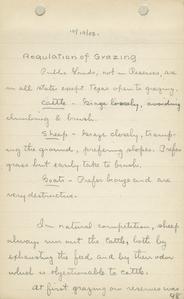 10/19/08.
Regulation of Grazing
Public lands, not in Reserves, are
in all states except Texas open to grazing.
Cattle - Graze loosely, avoiding
climbing & brush.
Sheep - Graze closely, tramp-
ing the ground, prefering slopes. Prefer
grass but early take to brush.
Goats - Prefer browse and are
very destructive.
In natural competition, sheep
always run out the cattle, both by
exhausting the feed and by their odor
which is objectionable to cattle.
At first grazing on reserves was
98